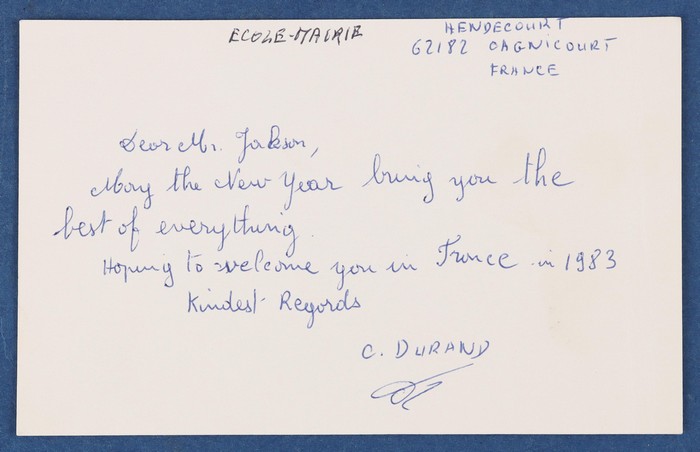 ECOLE-MAIRIE
HENDECOURT
62182 CAGNICOURT
FRANCE
Dear Mr. Jackson,
May the New Year bring you the
best of everything.
Hoping to welcome you in France in 1983
Kindest Regards
C. DURAND